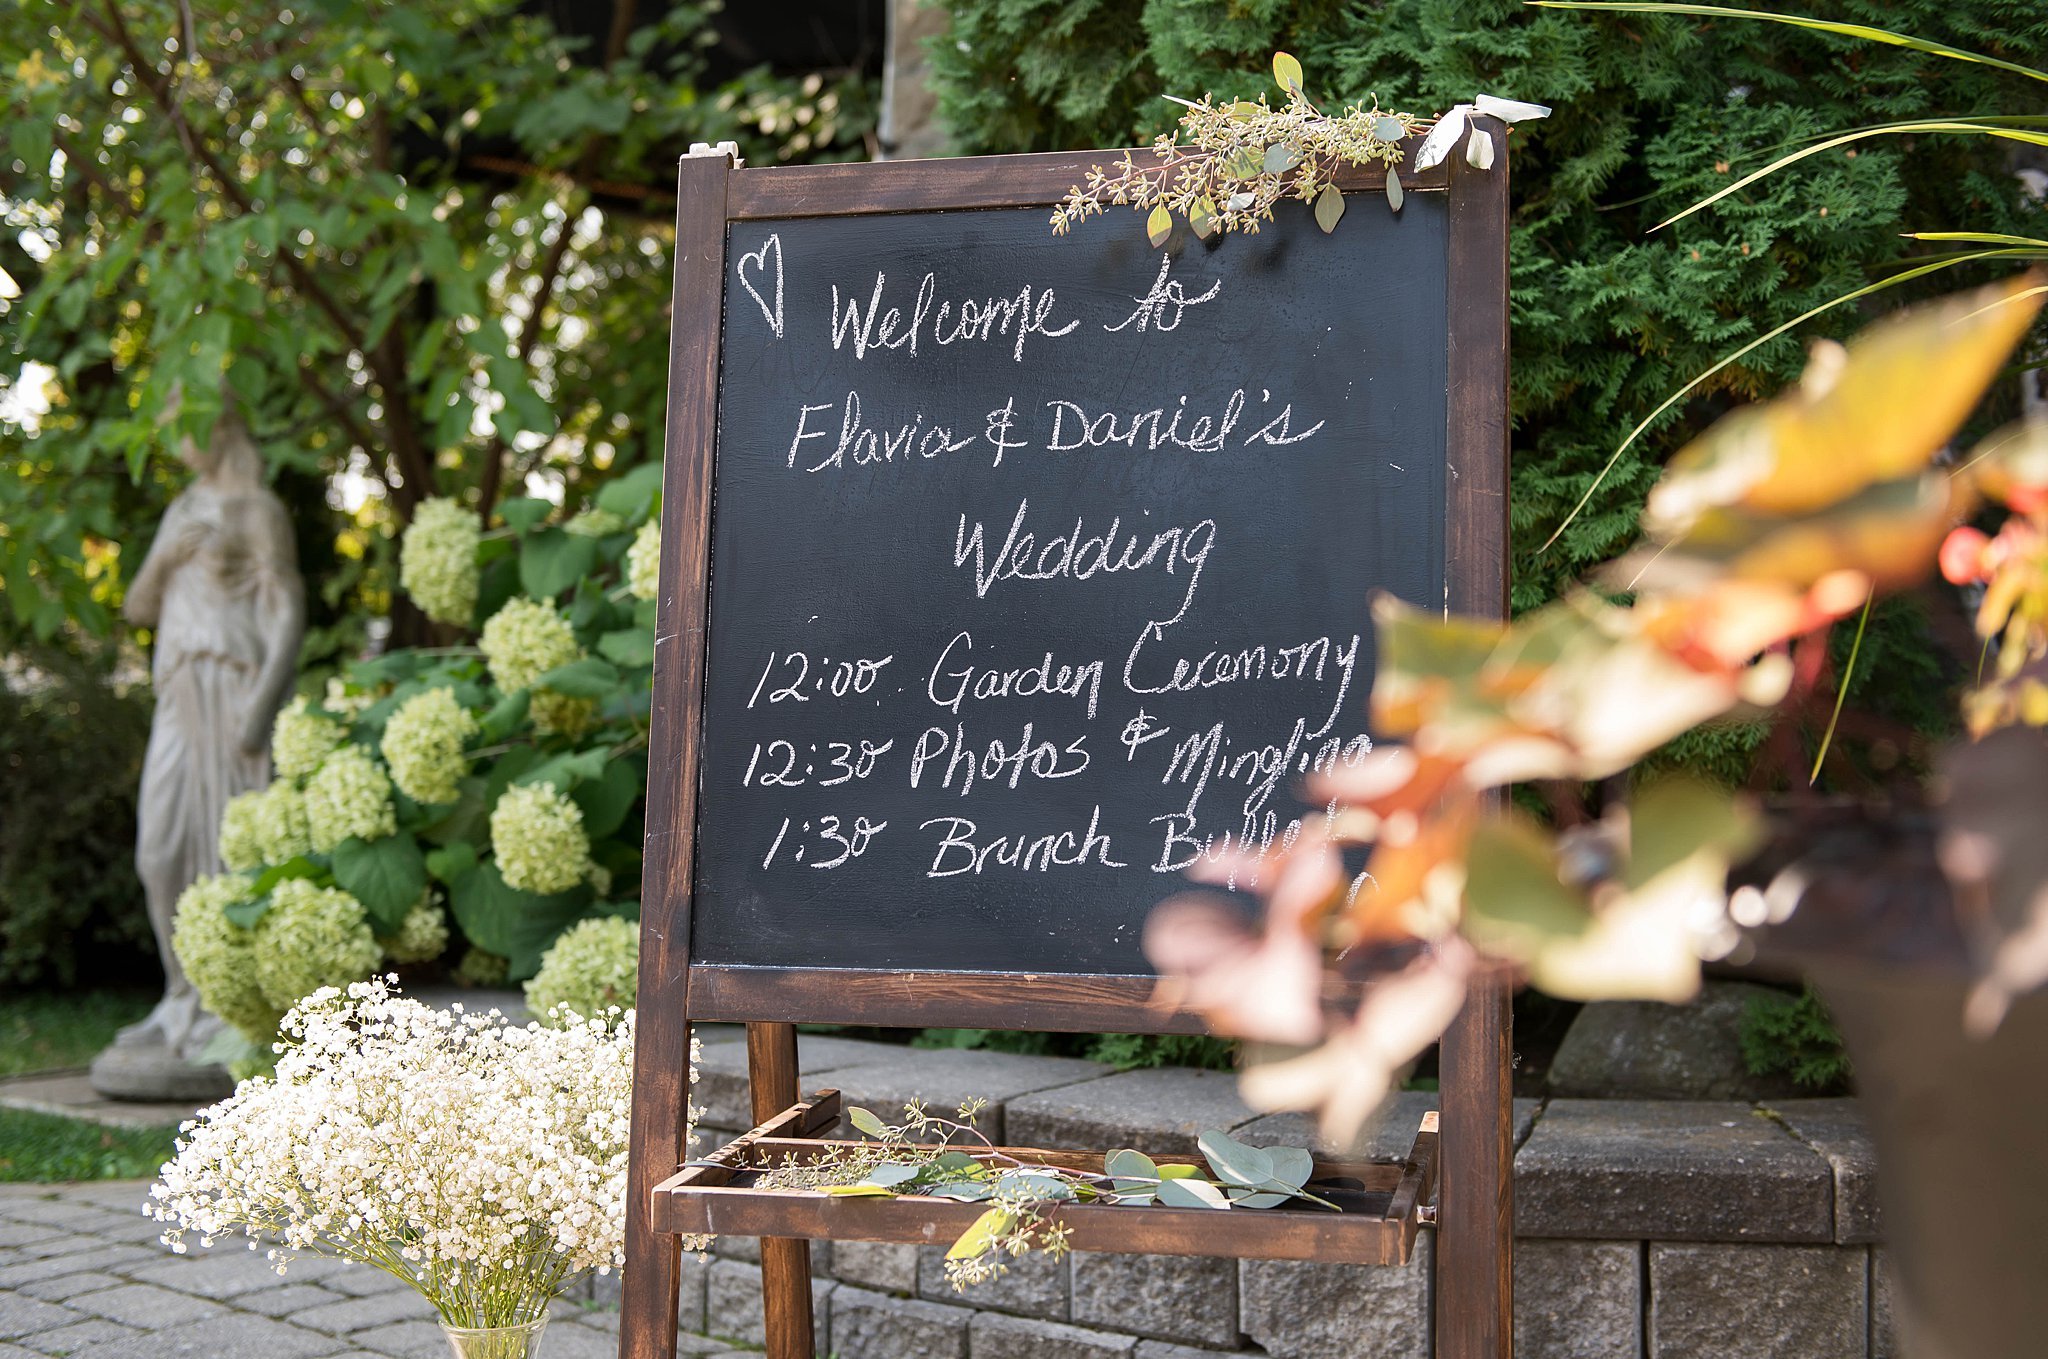 Welcome to
Flavia & Daniel's
Wedding
12:00 Garden Ceremony
12:30 Photos & Mingling
1:30 Brunch Buffet